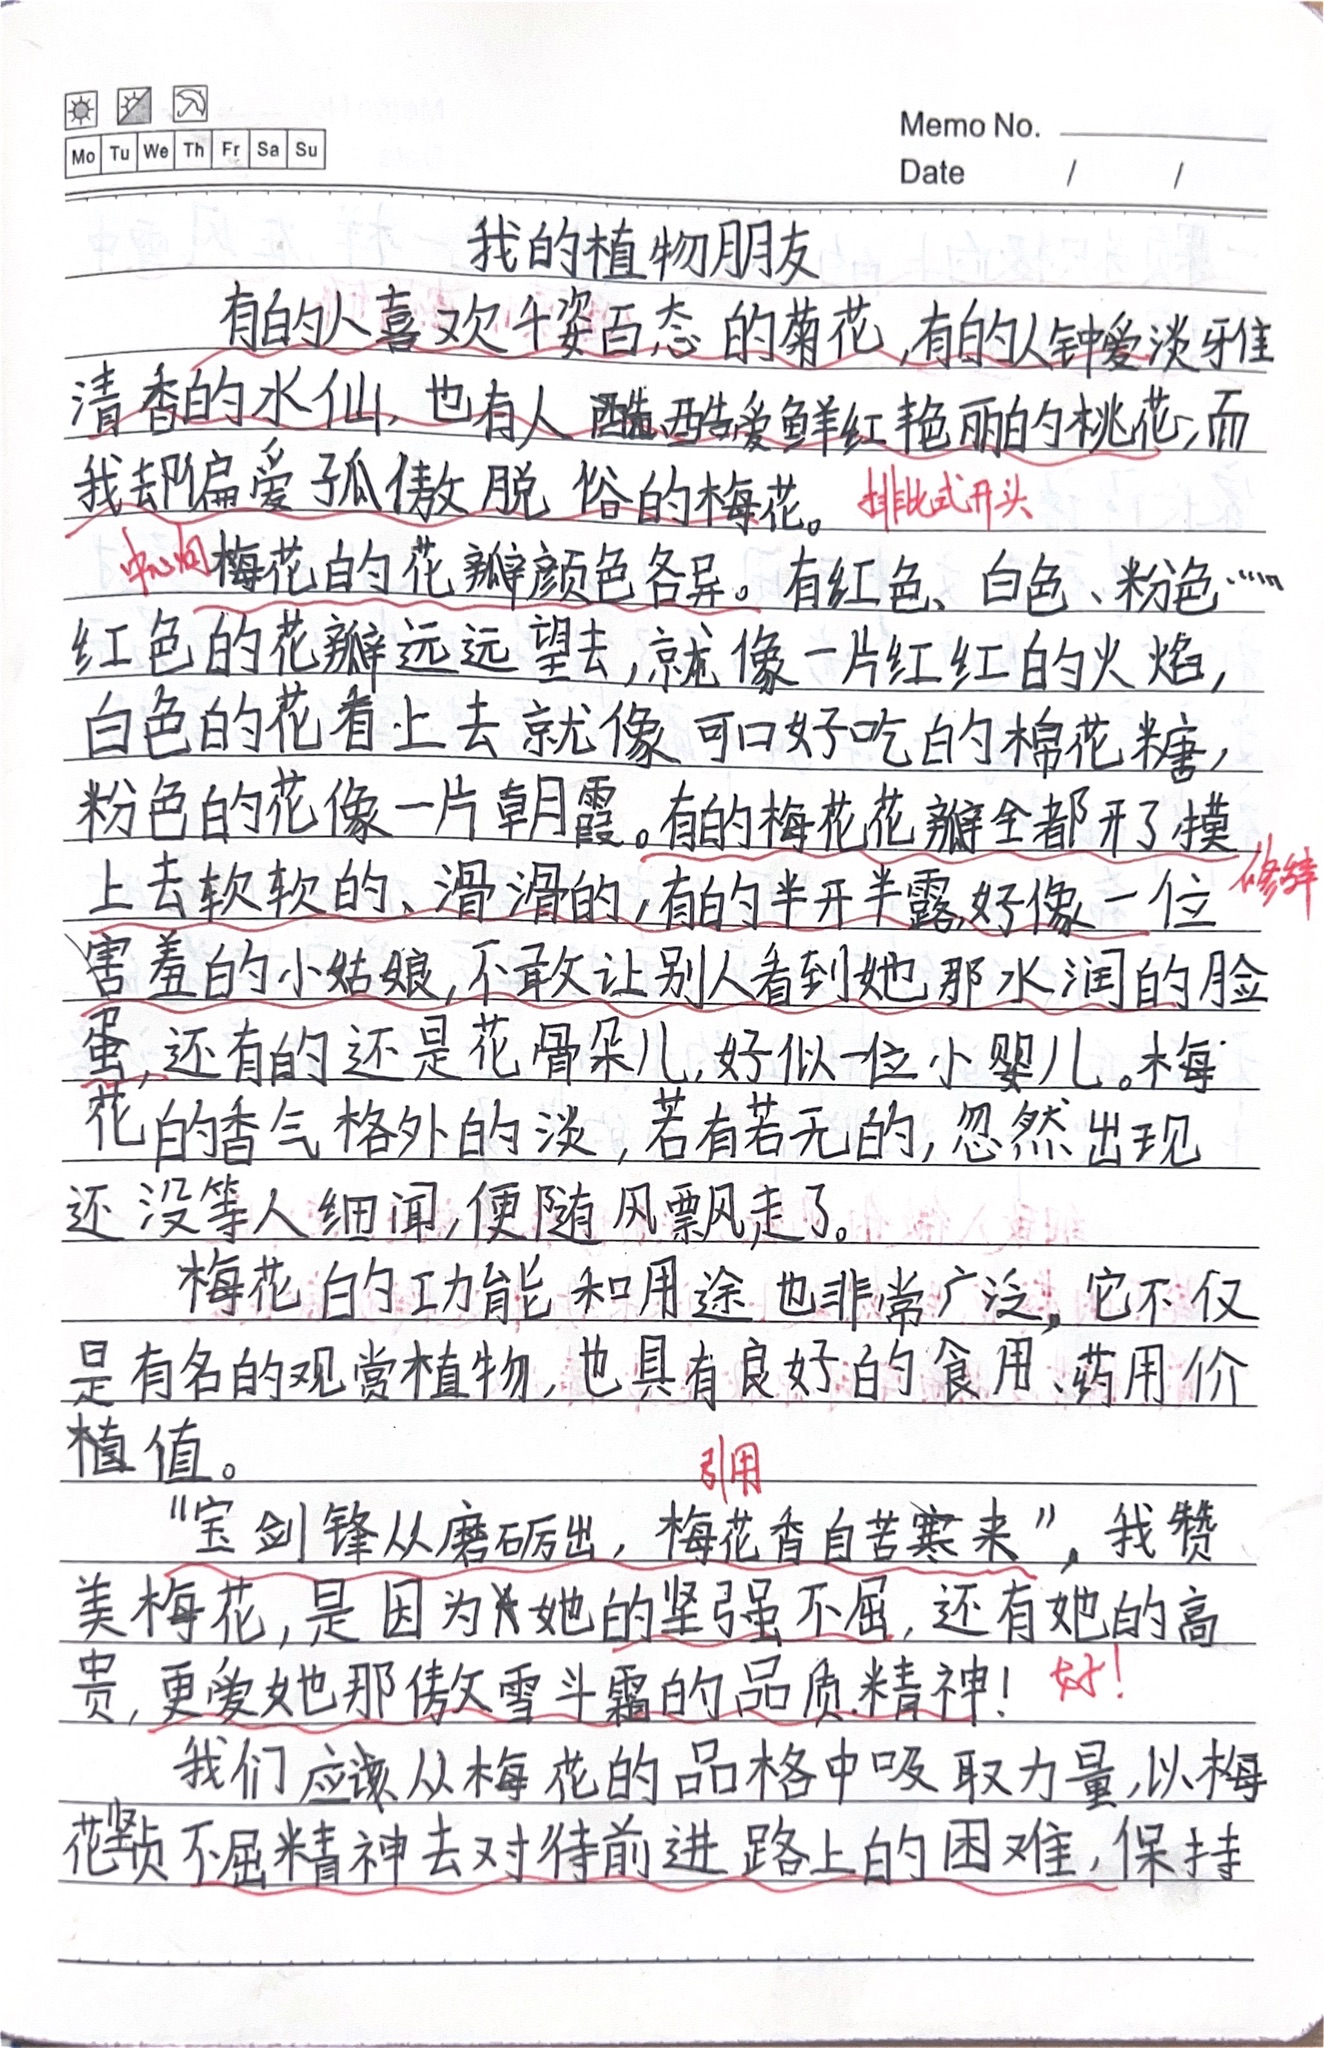 Mo Tu We Th Fr Sa Su
Memo No.
Date / /
我的植物朋友
有的人喜欢千姿百态的菊花,有的人钟爱淡雅
清香的水仙,也有人酷爱鲜红艳丽的桃花,而
我却偏爱孤傲脱俗的梅花。 排比式开头
中心句 梅花的花瓣颜色各异。有红色、白色、粉色……
红色的花瓣远远望去,就像一片红红的火焰,
白色的花看上去就像可口好吃的棉花糖,
粉色的花像一片朝霞。有的梅花花瓣全都开了,摸
上去软软的、滑滑的,有的半开半露,好像一位 修辞
害羞的小姑娘,不敢让别人看到她那水润的脸
蛋,还有的还是花骨朵儿,好似一位小婴儿。梅
花的香气格外的淡,若有若无的,忽然出现
还没等人细闻,便随风飘走了。
梅花的功能和用途也非常广泛,它不仅
是有名的观赏植物,也具有良好的食用、药用价
值。
引用
“宝剑锋从磨砺出,梅花香自苦寒来”,我赞
美梅花,是因为她的坚强不屈,还有她的高
贵,更爱她那傲雪斗霜的品质精神! 好!
我们应该从梅花的品格中吸取力量,以梅
花坚贞不屈精神去对待前进路上的困难,保持